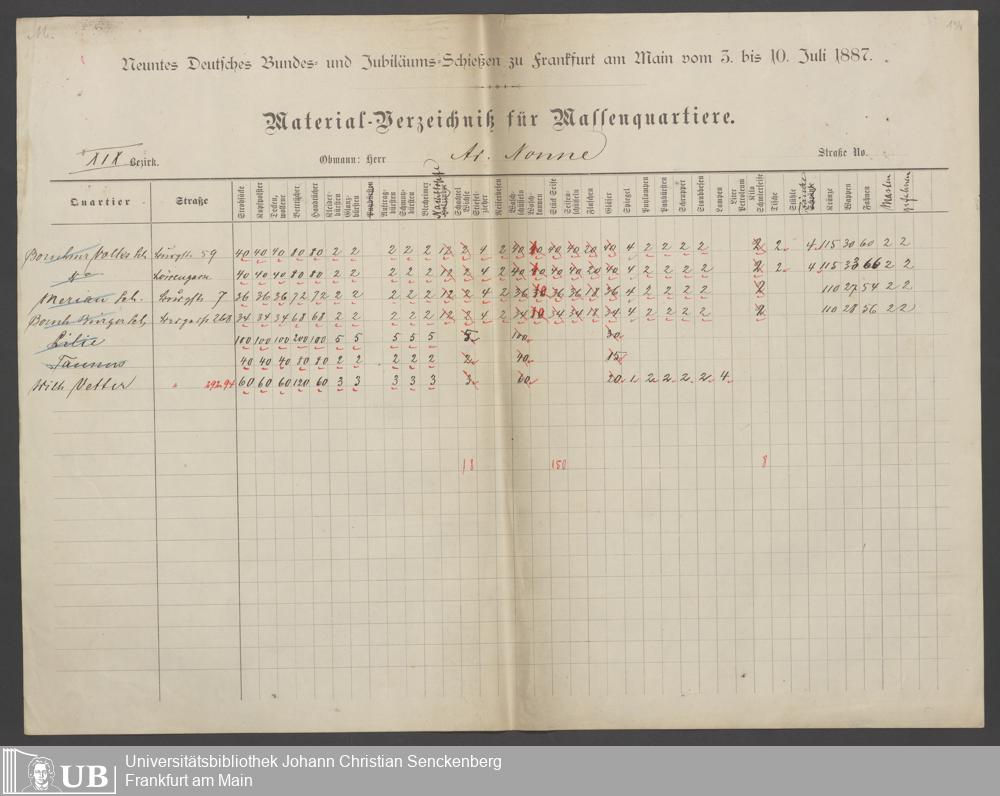 Neuntes Deutsches Bundes- und Jubiläums-Schießen zu Frankfurt am Main vom 3. bis 10. Juli 1887.
Material-Verzeichniß für Massenquartiere.
XIX Bezirk. Obmann: Herr Ad. Nonne Straße No.
Quartier Straße Strohsäcke Kopfpolster Decken, wollene Betttücher Handtücher Kleiderbürsten Glanzbürsten Auftragbürsten Schmutzbürsten Blecheimer Nachttöpfe Spachtel Wichse Stiefelzieher Reiserbesen Waschschüsseln Waschwannen Stück Seife Seifenschüsseln Flaschen Gläser Spiegel Putzlumpen Putzbürsten Schrupper Staubbesen Lampen Liter Petroleum Kilo Schmierseife Tische Stühle Bänke Kränze Wappen Fahnen Masten
59 40 40 40 80 80 2 2 2 2 2 12 2 4 2 40 10 40 40 20 40 4 2 2 2 2 2 2 4 115 30 60 2 2
40 40 40 80 80 2 2 2 2 2 12 2 4 2 40 40 40 20 40 4 2 2 2 2 2 2 4 115 33 66 2 2
Merian Sch. 7 36 36 36 72 72 2 2 2 2 2 12 2 4 2 36 10 36 36 18 36 4 2 2 2 2 2 110 27 54 2 2
268 34 34 34 68 68 2 2 2 2 2 12 2 4 2 34 10 34 34 18 34 4 2 2 2 2 2 110 28 56 2 2
100 100 100 200 100 5 5 5 5 5 5 100 50
Taunus 40 40 40 80 80 2 2 2 2 2 2 40 15
Wilh. Vetter " 292.94 60 60 60 120 60 3 3 3 3 3 3 60 20 1 2 2 2 2 4
18 150 8
UB Universitätsbibliothek Johann Christian Senckenberg
Frankfurt am Main